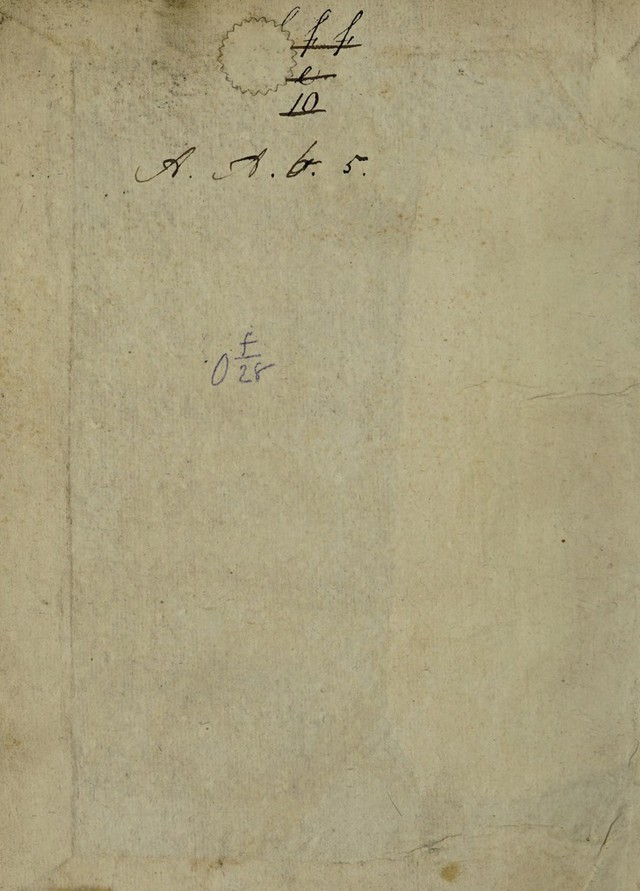 f f
e
10
A. A. b. 5.
O f
28